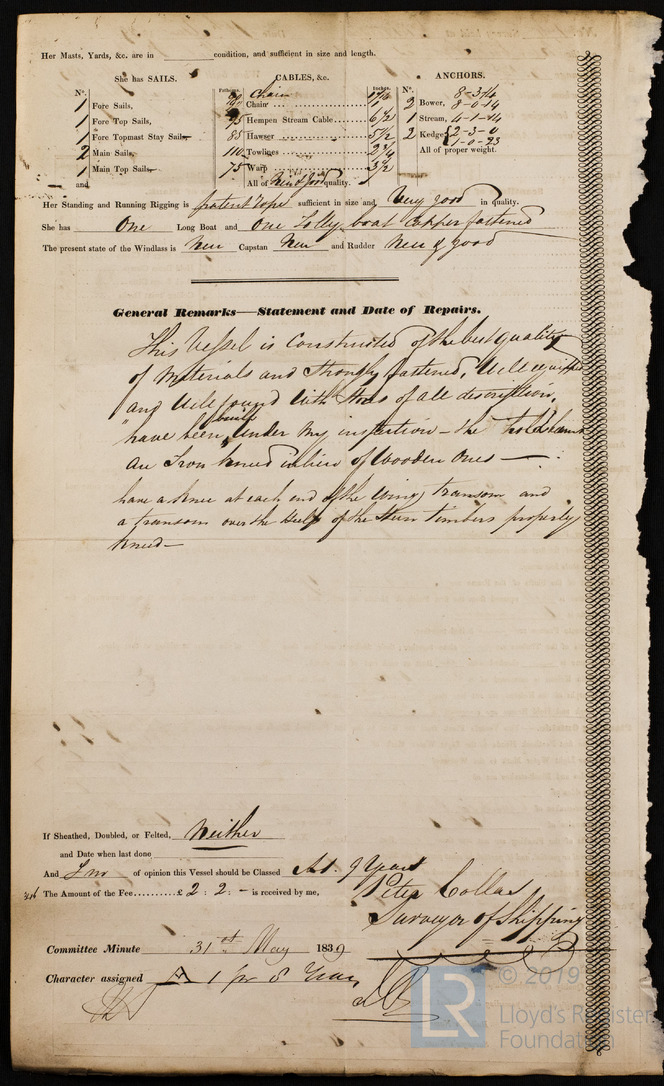 Her Masts, Yards, &c. are in condition, and sufficient in size and length.
She has SAILS.
CABLES, &c.
ANCHORS.
N°.
Fathoms.
Inches.
N°.
Chain
8-3-14
1 Fore Sails,
Chain
2 Bower, 8-0-14
1 Fore Top Sails,
Hempen Stream Cable 6 1/2
1 Stream, 4-1-14
1 Fore Topmast Stay Sails
85 Hawser 5 1/2
2 Kedge 2-3-0
1-0-23
2 Main Sails,
110 Towlines
All of proper weight.
1 Main Top Sails
75 Warp 3 1/2
and
All of New & good quality.
Her Standing and Running Rigging is patent rope sufficient in size and Very good in quality.
She has One Long Boat and One Jolly boat Copper fastened
The present state of the Windlass is New Capstan New and Rudder New & good
General Remarks—Statement and Date of Repairs.
This Vessel is Constructed of the best quality
of Materials and Strongly fastened, Well equipped
and Well found with Stores of all description,
have been built under my inspection - the hold beams
are Iron Kneed in lieu of Wooden Ones —
have a Knee at each end of the Wing transom and
a transom over the Heels of the Stern timbers properly
Kneed—
If Sheathed, Doubled, or Felted, Neither
and Date when last done
And I am of opinion this Vessel should be Classed A1. 9 Years
The Amount of the Fee £ 2 : 2 : - is received by me,
Peter Collas
Surveyor of Shipping
Committee Minute 31st May 1839
Character assigned A 1 for 8 Years
LR © 2019
Lloyd's Register
Foundation